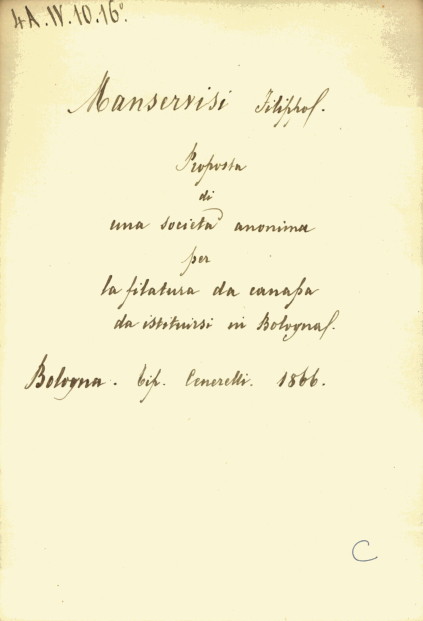 4A.IV.10.16°.
Manservisi Filippo.
Proposta
di
una società anonima
per
la filatura da canapa
da istituirsi in Bologna.
Bologna. Tip. Cenerelli. 1866.
C